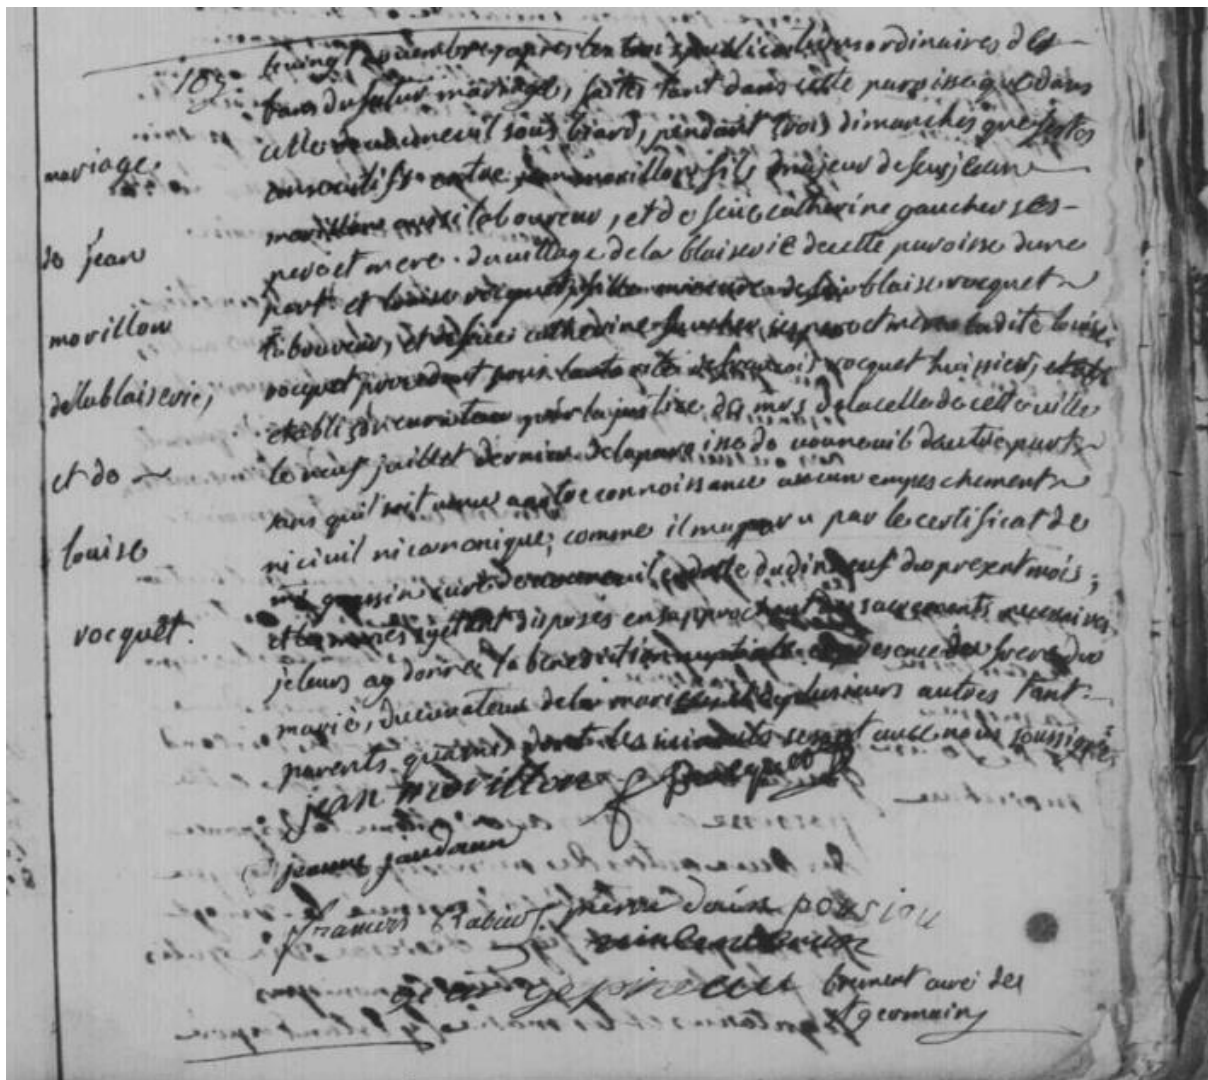 103
mariage
de jean
morillon
delablaiserie,
et de
louise
rocquet.
le vingt novembre, apres les trois publications ordinaires des
bans du futur mariage, faites tant dans cette paroisse que dans
celle de vouneuil sous biard, pendant trois dimanches que festes
consecutifs entre jean morillon fils majeur de feu jean
morillon aussi laboureur, et de feue catherine gaucher ses
pere et mere. du village de la blaiserie de cette paroisse dune
part. et louise rocquet, fille mineure de feu blaise rocquet
laboureur, et de feue catherine ses pere et mere ladite louise
rocquet procedant pour de françois rocquet huissier,
établi son curateur par la justice de la celle de cette ville
le neuf juillet dernier. de la paroisse de vouneuil dautre part
sans quil soit venu a notre connoissance aucun empeschement
ni civil ni canonique; comme il m'a paru par le certificat de
mr curé de vouneuil en datte du dix neuf du present mois;
et les mariés sy étant disposés en sapprochant des sacrements necessaires,
je leurs ay donné la benediction nuptiale en presence du frere du
marié, du curateur de la mariée et de plusieurs autres tant
parents. quamis dont les se sont avec nous soussignés
jean morillon rocquet
jeanne
françois pierre pousiou
brunet curé de
st germain